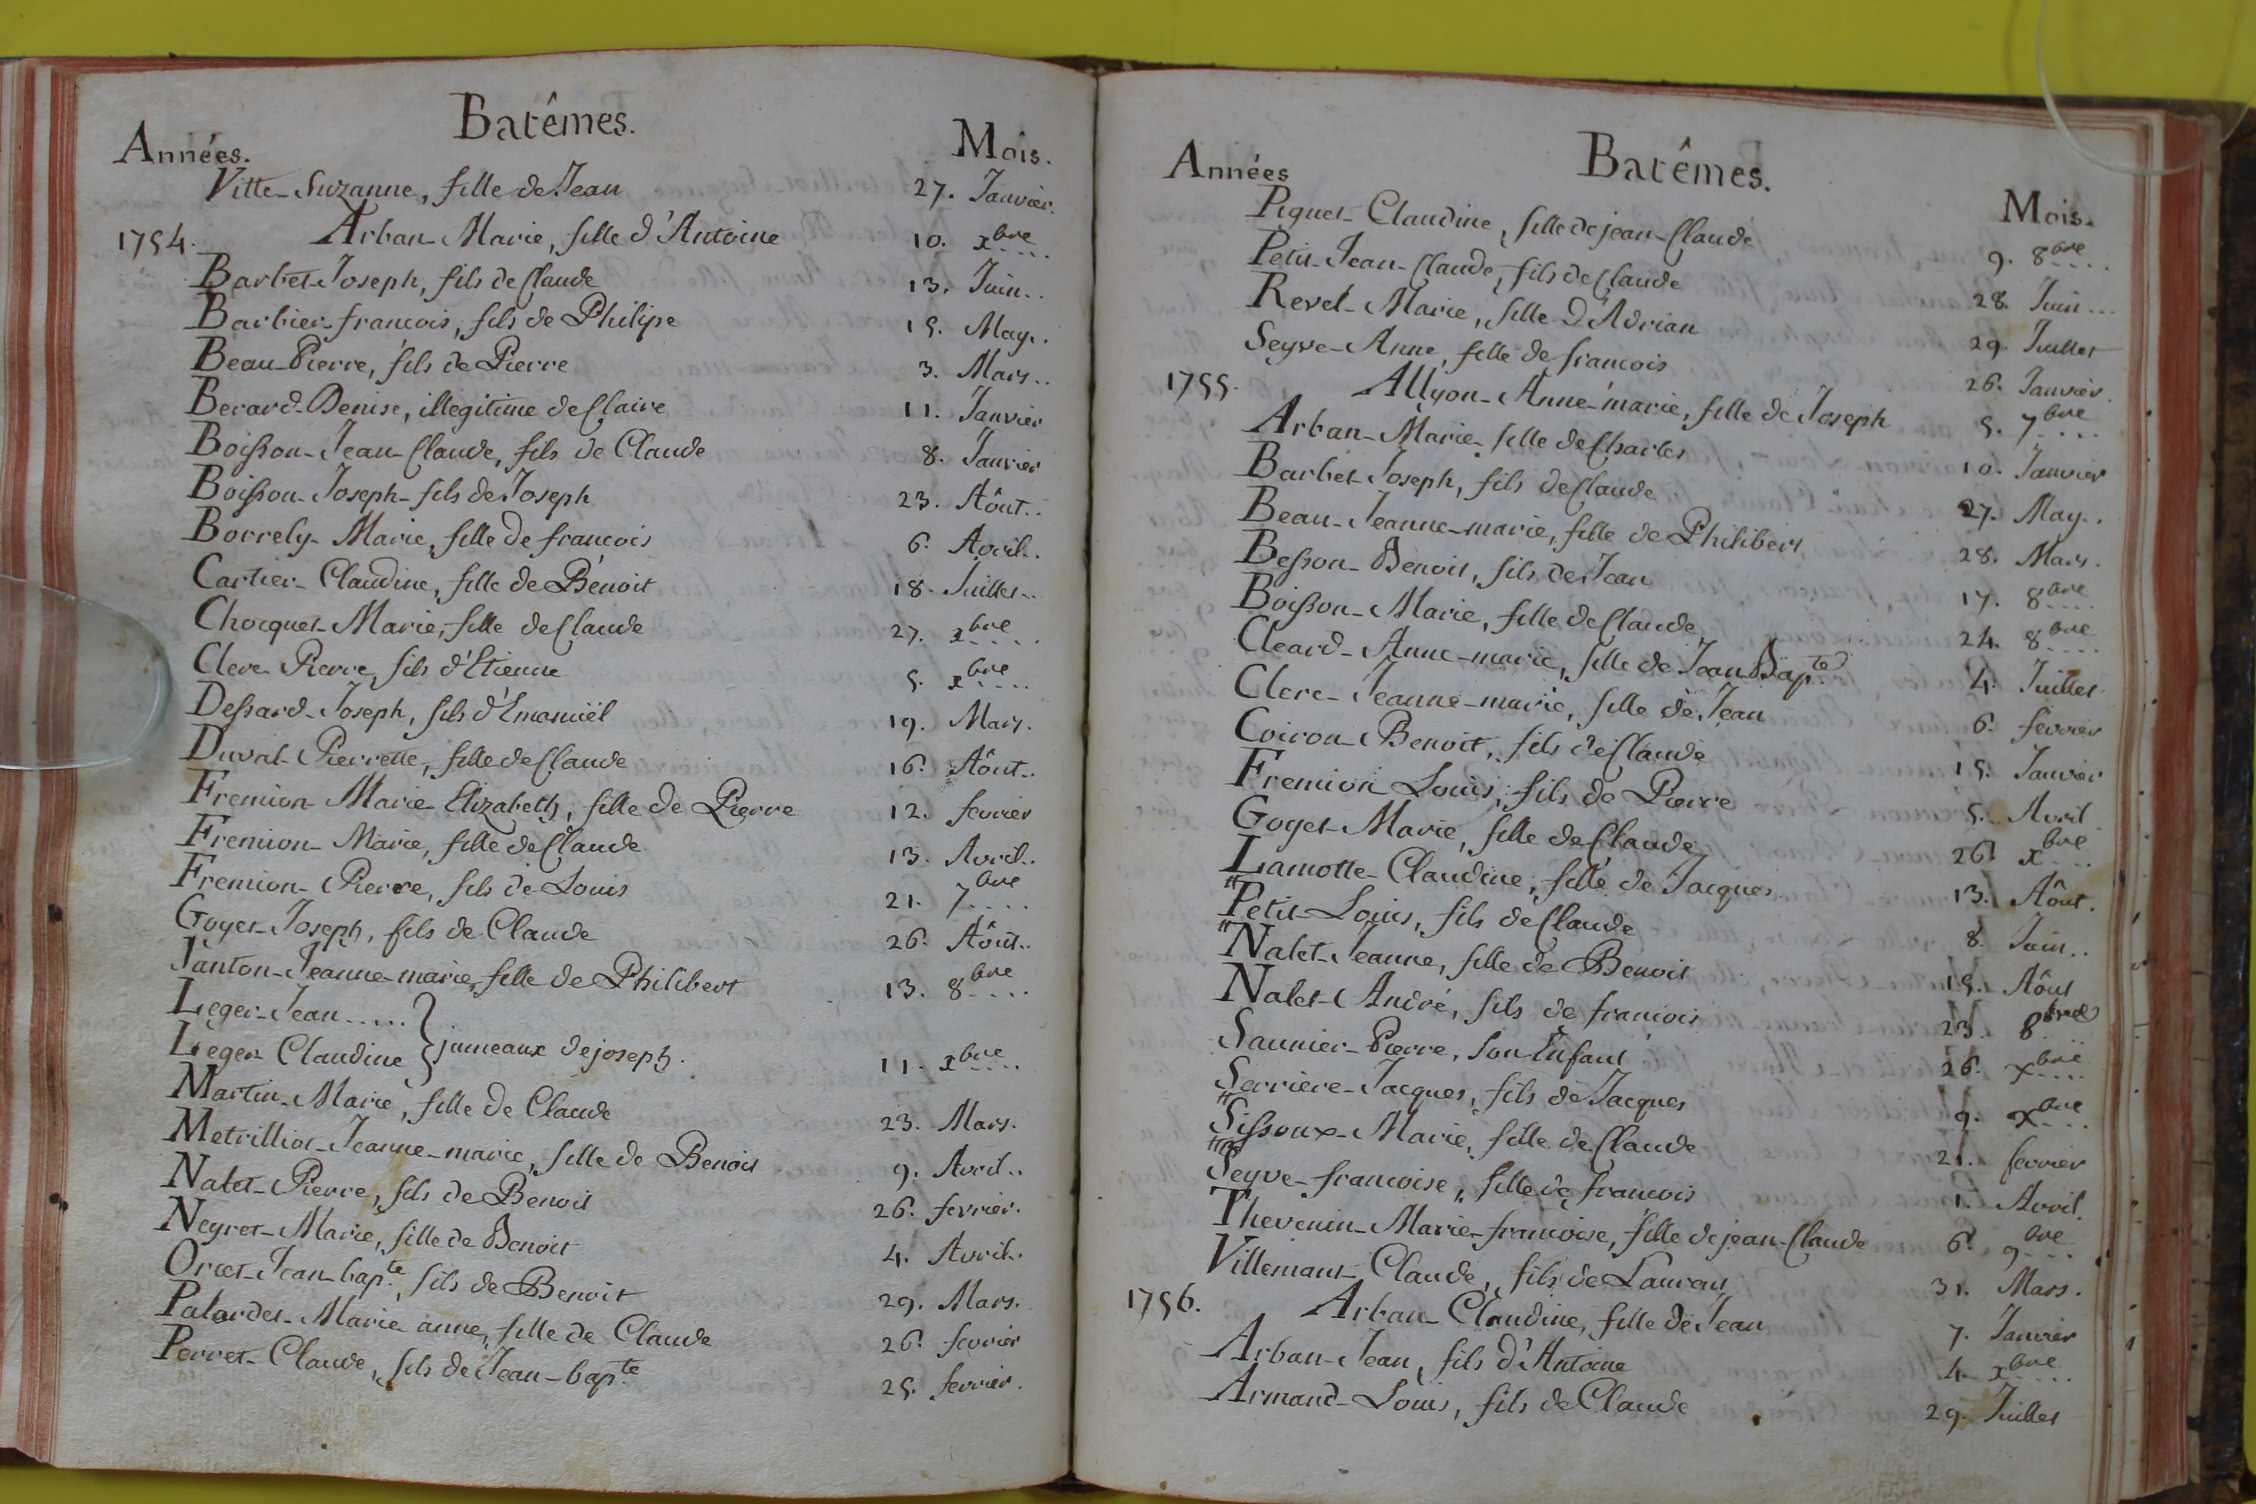 Batêmes.
Années. Mois.
Vitte-Suzanne, fille de Jean 27. Janvier.
1754. Arban-Marie, fille d'Antoine 10. xbre....
Barbet-Joseph, fils de Claude 13. Juin..
Barbier-francois, fils de Philipe 15. May..
Beau-Pierre, fils de Pierre 3. Mars..
Berard-Denise, illegitime de Claire 11. Janvier
Boisson-Jean-Claude, fils de Claude 8. Janvier
Boisson-Joseph-fils de Joseph 23. Aôut..
Borrely-Marie, fille de francois 6. Avril..
Cartier-Claudine, fille de Benoit 18. Juillet..
Chocquet-Marie, fille de Claude 27. xbre....
Clere-Pierre, fils d'Etienne 5. xbre....
Dessard-Joseph, fils d'Emanuël 19. Mars.
Duval-Pierrette, fille de Claude 16. Aôut..
Fremion-Marie-Elizabeth, fille de Pierre 12. fevrier
Fremion-Marie, fille de Claude 13. Avril..
Fremion-Pierre, fils de Louis 21. 7bre....
Goyet-Joseph, fils de Claude 26. Aôut..
Janton-Jeanne-marie, fille de Philibert 13. 8bre....
Leger-Jean.....
Leger Claudine } jumeaux de joseph. 11. xbre....
Martin-Marie, fille de Claude 23. Mars.
Metrilliot-Jeanne-marie, fille de Benoit 9. Avril..
Nalet-Pierre, fils de Benoit 26. fevrier.
Neyret-Marie, fille de Benoit 4. Avril..
Orcet-Jean-bapte, fils de Benoit 29. Mars.
Palardet-Marie anne, fille de Claude 26. fevrier
Perret-Claude, fils de Jean-bapte 25. fevrier.
Batêmes.
Années Mois.
Piquet-Claudine, fille de jean-Claude 9. 8bre....
Petit-Jean-Claude, fils de Claude 28. Juin...
Revel-Marie, fille d'Adrian 29. Juillet
Seyve-Anne, fille de francois 26. Janvier.
1755. Allyon-Anne-marie, fille de Joseph 5. 7bre....
Arban-Marie-fille de Charles 10. Janvier
Barbet-Joseph, fils de Claude 27. May..
Beau-Jeanne-marie, fille de Philibert 28. Mars.
Besson-Benoit, fils de Jean 17. 8bre....
Boisson-Marie, fille de Claude 24. 8bre....
Cleard-Anne-marie, fille de Jean Bapte 4. Juillet
Clere-Jeanne-marie, fille de Jean 6. fevrier
Coiron-Benoit, fils de Claude 15. Janvier
Fremion Louis, fils de Pierre 5. Avril
Goyet-Marie, fille de Claude 26. xbre....
Lamotte-Claudine, fille de Jacques 13. Aôut.
Petit-Louis, fils de Claude 8. Juin..
Nalet-Jeanne, fille de Benoit 15. Aôut
Nalet-André, fils de francois 23. 8bre
Saunier-Pierre, son Enfant 26. xbre....
Serriere-Jacques, fils de Jacques 9. xbre....
Sissoux-Marie, fille de Claude 21. fevrier
Seyve-francoise, fille de francois 1. Avril.
Thevenin-Marie-francoise, fille de jean-Claude 6. 9bre....
Villemant-Claude, fils de Laurent 31. Mars.
1756. Arban-Claudine, fille de Jean 7. Janvier
Arban-Jean, fils d'Antoine 4. xbre....
Armand-Louis, fils de Claude 29. Juillet